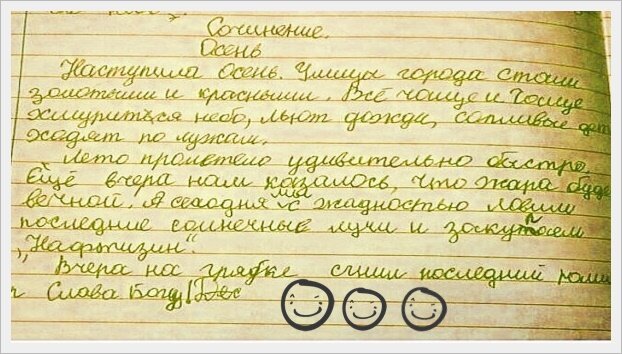 Сочинение.
Осень
Наступила Осень. Улицы города стали
золотыми и красными. Всё чаще и чаще
хмуриться небо, льют дожди, сопливые дет
ходят по лужам.
Лето пролетело удивительно быстро.
Ещё вчера нам казалось, что жара буде
вечной. А сегодня мы с жадностью ловим
последние солнечные лучи и закупаем
"Нафтизин".
Вчера на грядке сгнил последний поми
р Слава Богу!